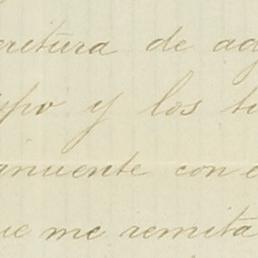 critura de ag
ipo y los ti
anuente con e
ue me remita